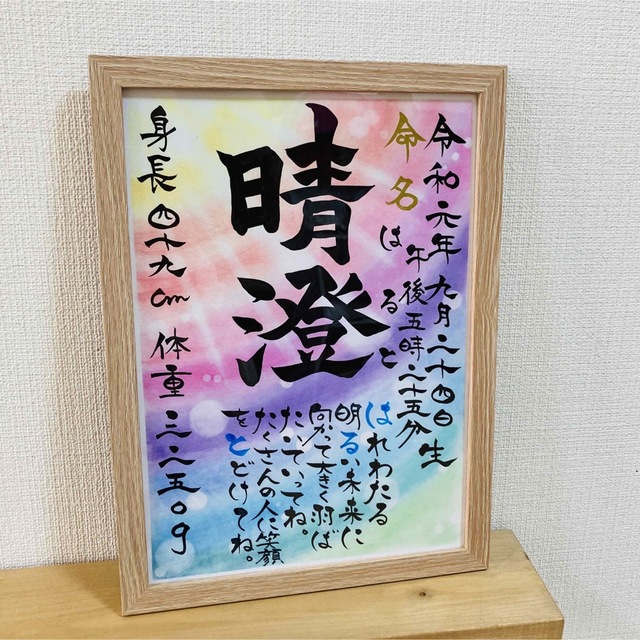 令和元年九月二十四日生
午後五時二十五分
命名
はると
晴澄
はれわたる
明るい未来に
向かって大きく羽ば
たいていってね。
たくさんの人に笑顔
をとどけてね。
身長四十九cm 体重三二五〇g